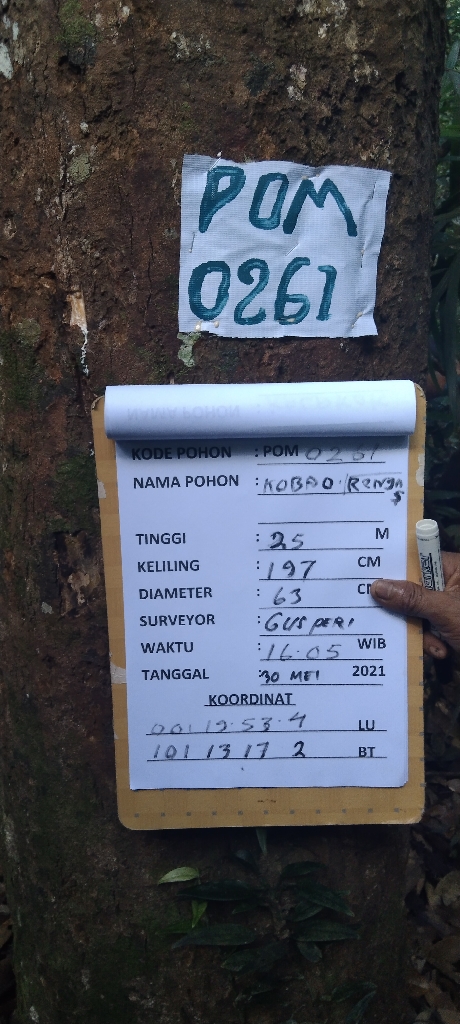 POM
0261
KODE POHON : POM 0261
NAMA POHON : KOBAO /RENGAS
TINGGI : 25 M
KELILING : 197 CM
DIAMETER : 63 CM
SURVEYOR : GUSPERI
WAKTU : 16.05 WIB
TANGGAL : 30 MEI 2021
KOORDINAT
00 19.53.4 LU
101 13 17 2 BT